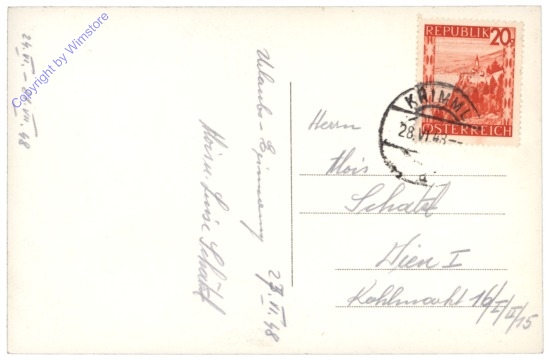 24.VI. - 24.VII.48
Copyright by Wimstore
Urlaubs-Erinnerung 27.VI.48
Luise Schätzl
REPUBLIK 20g
ÖSTERREICH
KRIMML
28.VI.48
Herrn
Alois
Wien I
Kohlmarkt 16/I/II/15